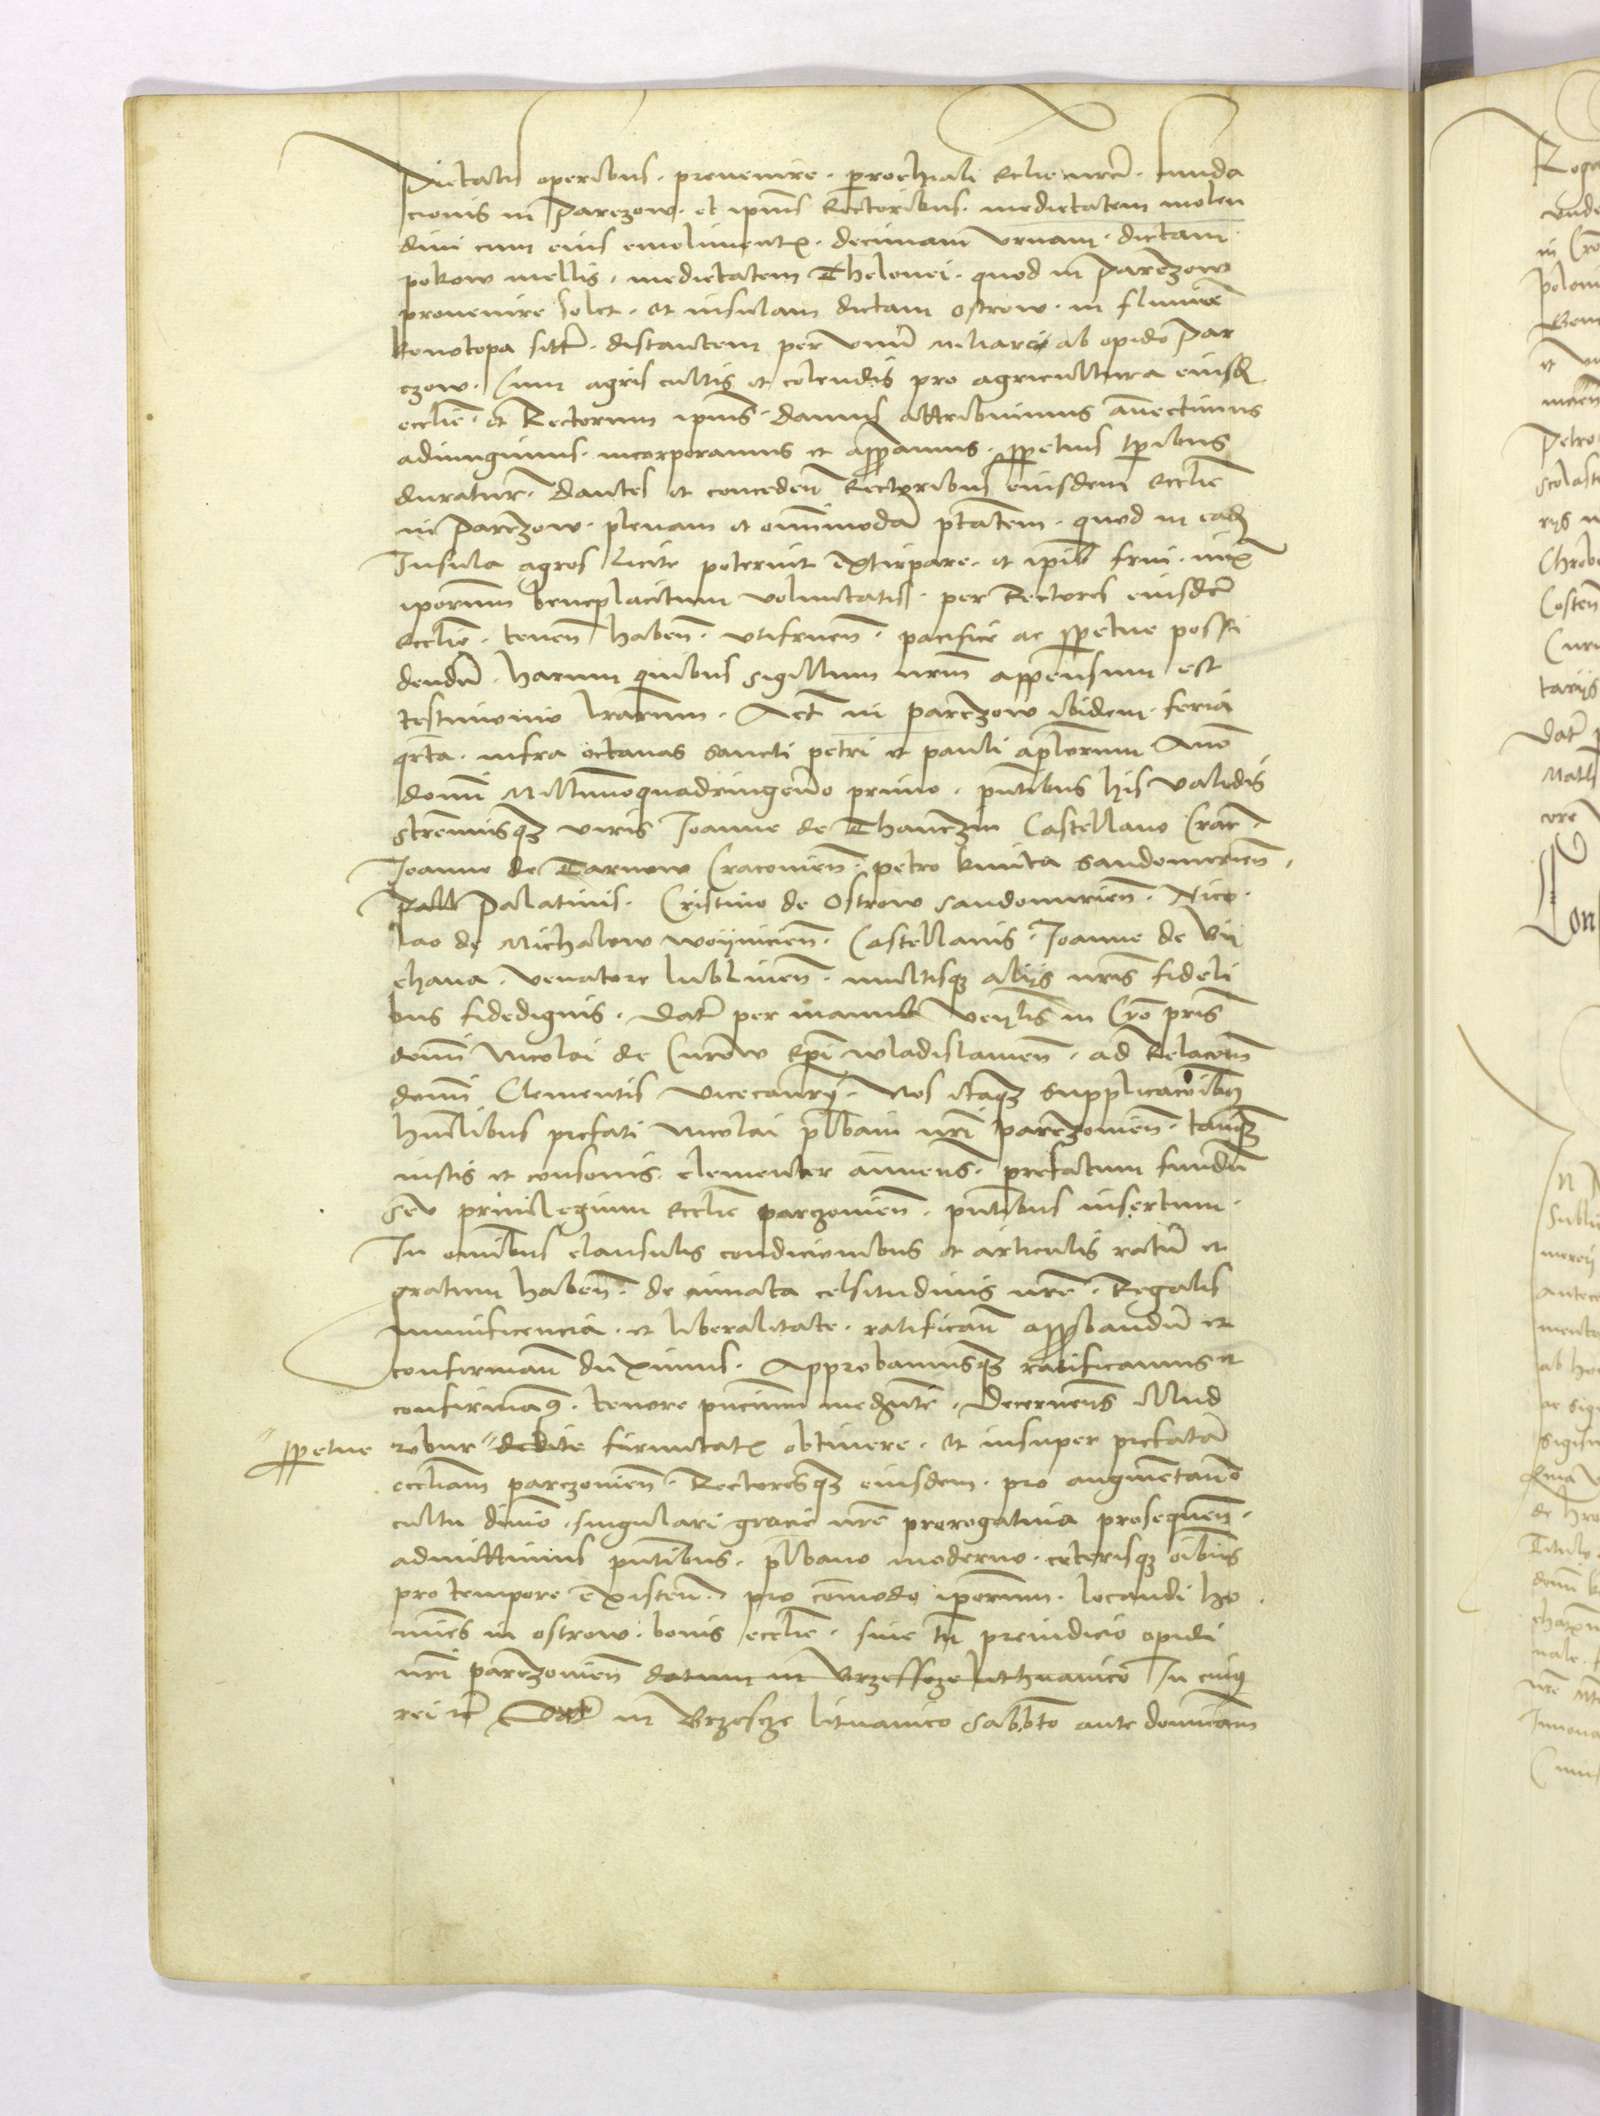 Pietatis operibus. prouenire. parochiali Ecclie nrẽ. funda
cionis in Parczow. et ipius Rectoribus. medietatem molen
dini cum eius emolimentis. decimam vrnam. dictam
pokow mellis. medietatem Thelonei. quod in Parczow
prouenire solet. et insulam dictam ostrow. in flumine
konotopa sitã. distantem per vnũ miliare ab opido Par
czow. Cum agris cultis et colendis pro agricultura eiusdẽ
ecclie. et Rectorum ipius. damus attribuimus anectimus
adiungimus. incorporamus et approbamus. perpetuis tpibus
duratur. dantes et conceden Rectoribus eiusdem Ecclie
in Parczow. plenam et omnimodã ptatem. quod in eadẽ
Insula agros licite poterint extirpare. et ipis frui. iuxta
iporum beneplacitum voluntatis. per Rectores eiusdẽ
Ecclie. tenen haben. vtifruen. pacifice ac perpetue possi
dendũ. harum quibus sigillum nrm appensum est
testimonio lrarum. Act in parczow ibidem feria
qrta. infra octauas sancti petri et pauli aplorum Anno
domi Millimoquadringento primo. pntibus his validis
strenuisqz viris Joanne de Thanczin Castellano Crac.
Joanne de Tarnow Cracouien. petro kmita Sandomirien.
Pall Palatinis. Cristino de Ostrow Sandomirien. Nico
lao de Michalow woijnicien. Castellanis. Joanne de Bij
chaua. venatore lublinen. multisqz alijs nris fideli
bus fidedignis. Dat per manus Venlis in Cro pris
domi Nicolai de Curow Epi wladislauien. ad Relacom
domi Clementis vicecancrij. Nos itaqz supplicacoibus
humlibus prefati Nicolai plbani nri parczouien. tanqz
iustis et consonis. clementer annuens. prefatum fundũ
seu priuilegium Ecclie parczouien. pntibus insertum.
In omibus clausulis condicionibus et articulis ratũ et
gratum haben. de innata celsitudinis nrẽ. Regalis
munificencia. et liberalitate. ratifican approbandũ et
confirman duximus. Approbamusqz ratificamus et
confirmaq. tenore pncium mediante. Decernens illud
perpetue robur debite firmitatis obtinere. Et insuper prefatã
eccliam parczouien. Rectoresqz eiusdem. pro augmentando
cultu diuino. singulari gracie nrẽ prerogatiua prosequen.
admittimus pntibus. plbano moderno. ceterisqz oibus
pro tempore existen. pro comodo iporum. locandi ho
mines in ostrow. bonis ecclie. sine tn preiudicio opidi
nri parczouien datum in Brzessczelitthuanico In cuiq
rei tẽ Dat in Brzescze lituanico sabbto ante domicam